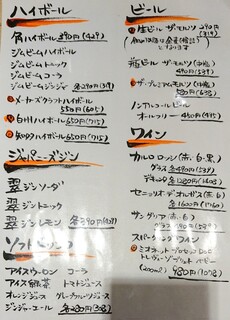 ハイボール
角ハイボール 390円(429)
ジムビームハイボール
ジムビームソーダ
ジムビームコーラ
ジムビームジンジャー 各290円(319)
メーカーズクラフトハイボール
550円(605)
白州ハイボール 650円(715)
知多ハイボール 650円(715)
ジャパニーズジン
翠ジンソーダ
翠ジントニック
翠ジンレモン 各390円(429)
ソフトドリンク
アイスウーロン コーラ
アイス緑茶 トマトジュース
オレンジジュース グレープフルーツジュース
ジンジャーエール 各280円(308)
ビール
生ビール ザ・モルツ 290円
(319)
瓶ビール ザ・モルツ(中瓶)
490円(539)
ザ・プレミアムモルツ(中瓶)
ノンアルコールビール
オールフリー
ワイン
カルロ ロッシ(赤・白・黒)
グラス 各490円(539)
デキャンタ
セニョリオ・デ・オルガス(赤・白)
各1600円(1760)
サングリア(赤・白)
グラス 490円(539)
スパークリングワイン
ミオネット プロセッコ DOC
トレヴィーゾ ブリュット ベビー
(200ml) 980円(1078)